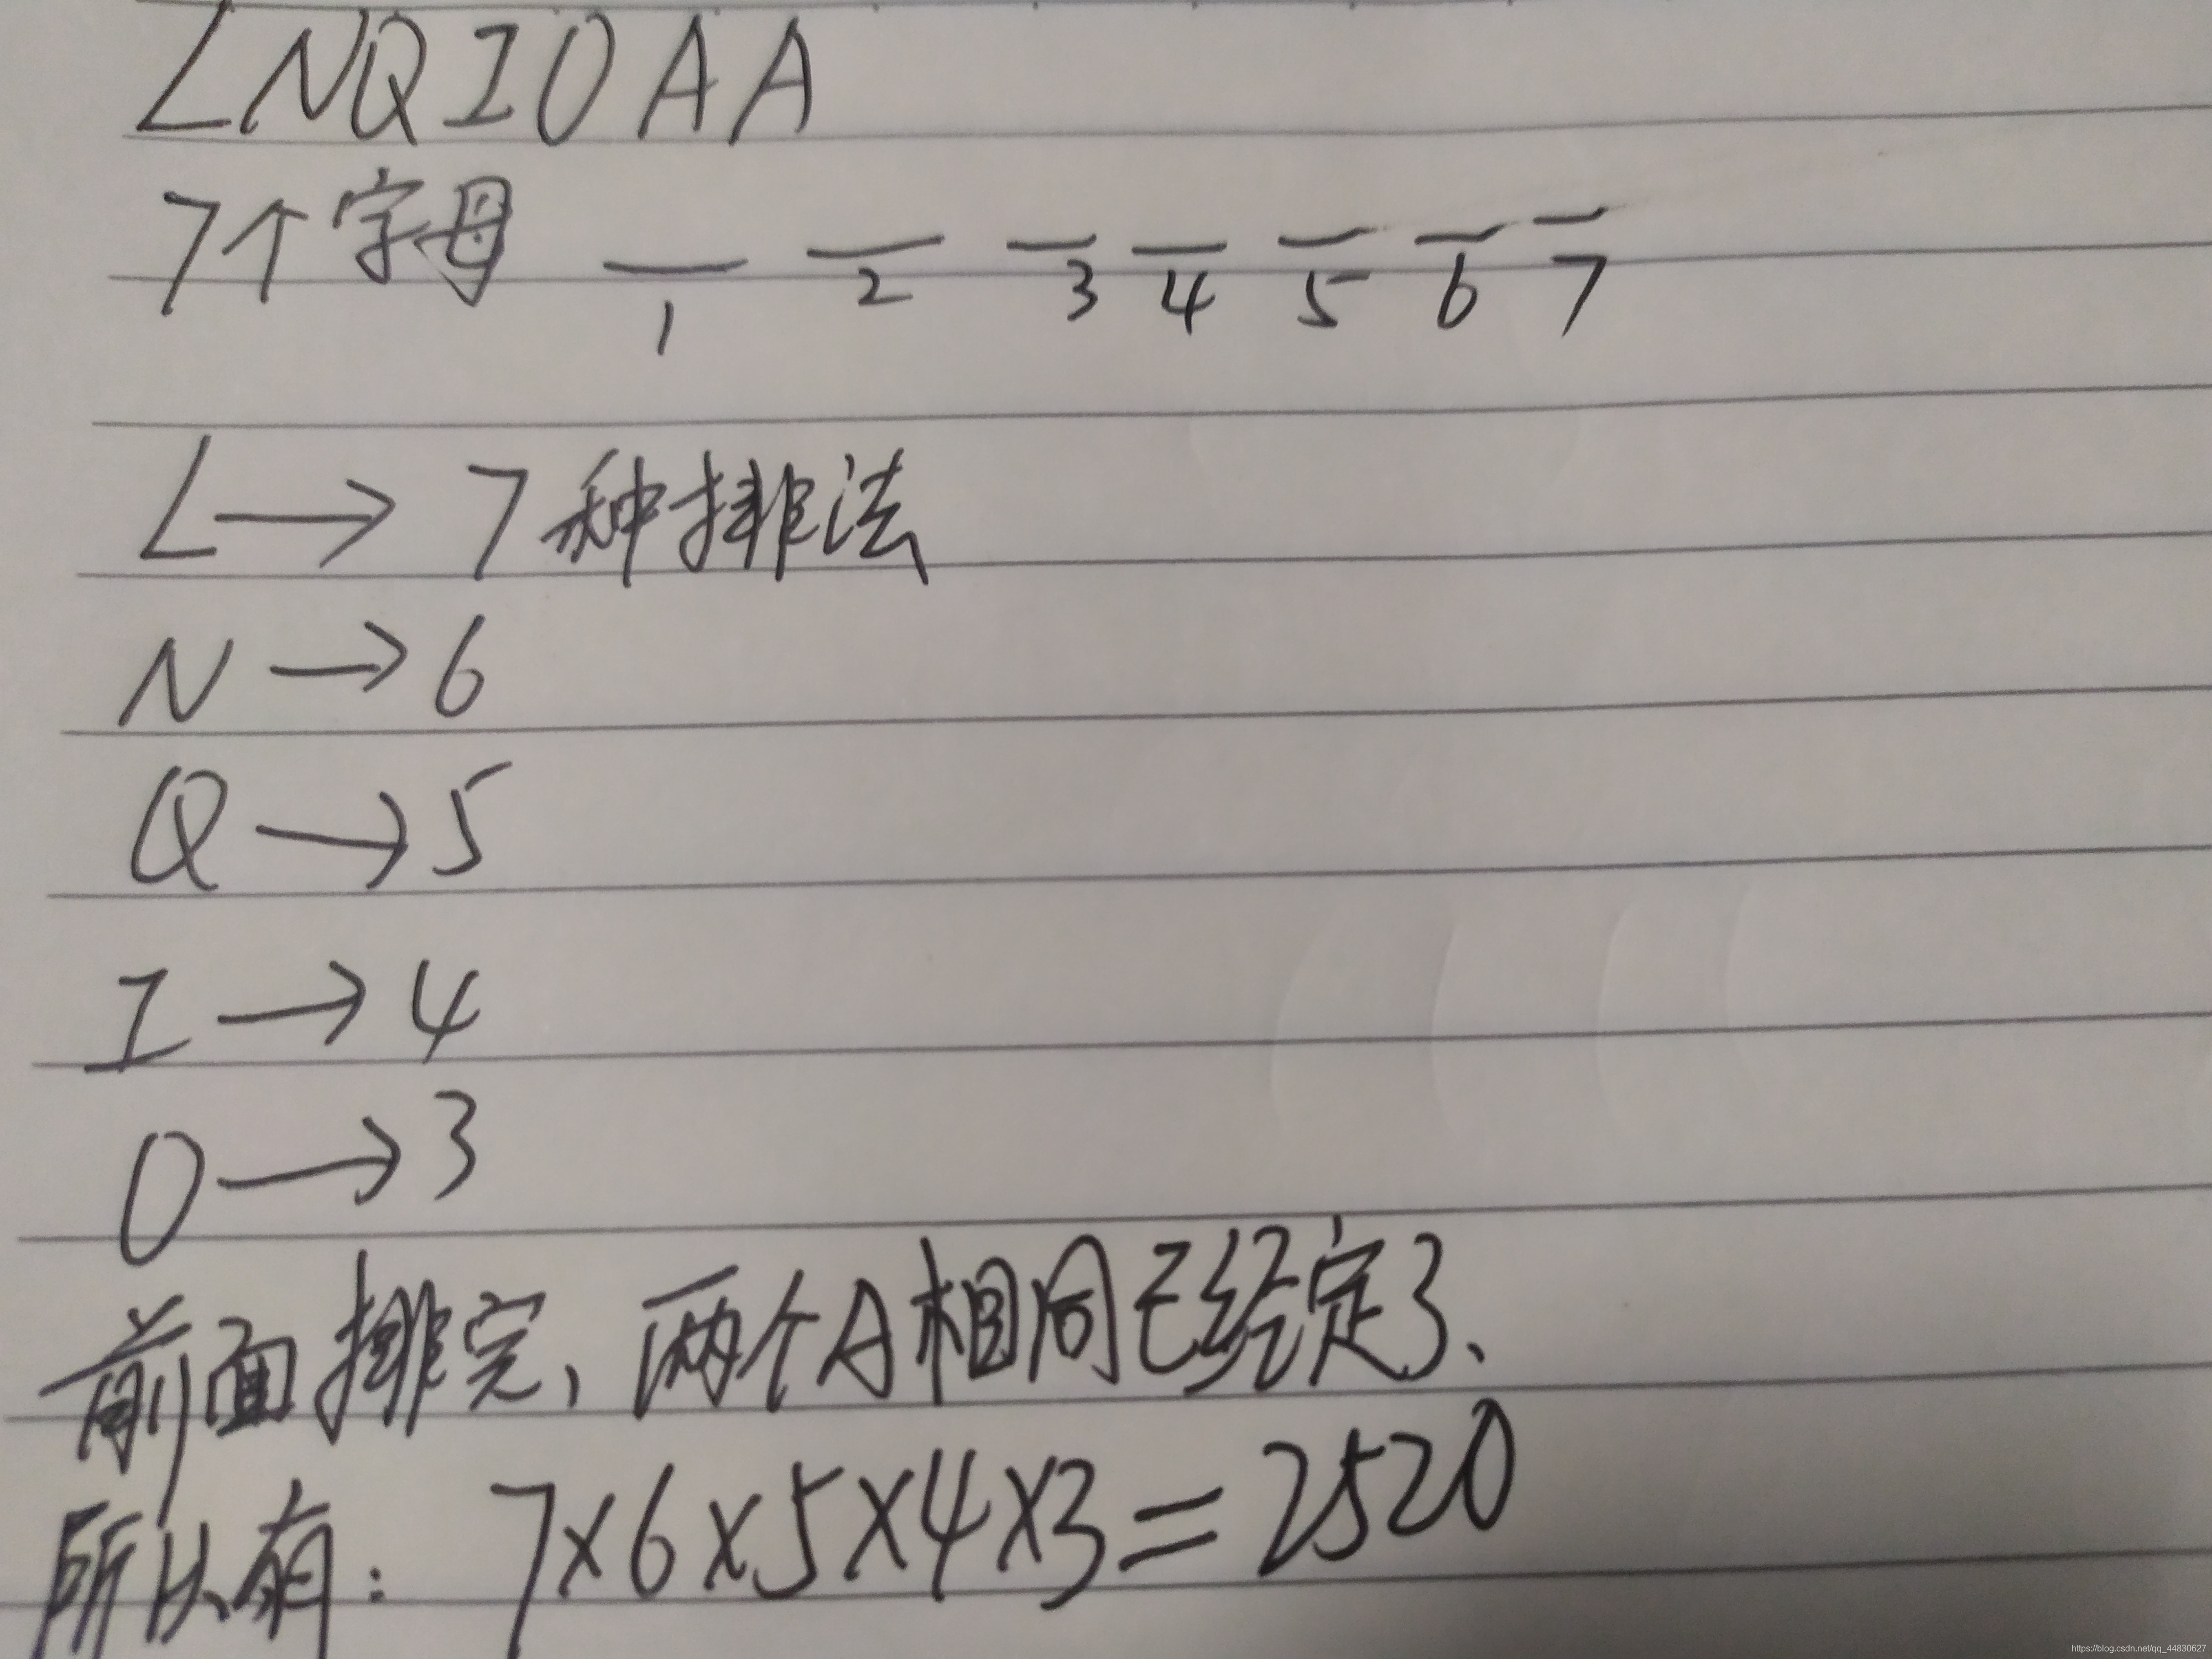 LNQIOAA
7个字母
1 2 3 4 5 6 7
L→7种排法
N→6
Q→5
I→4
O→3
前面排完,两个A相同已经定了、
所以有:7×6×5×4×3=2520
https://blog.csdn.net/qq_44830627